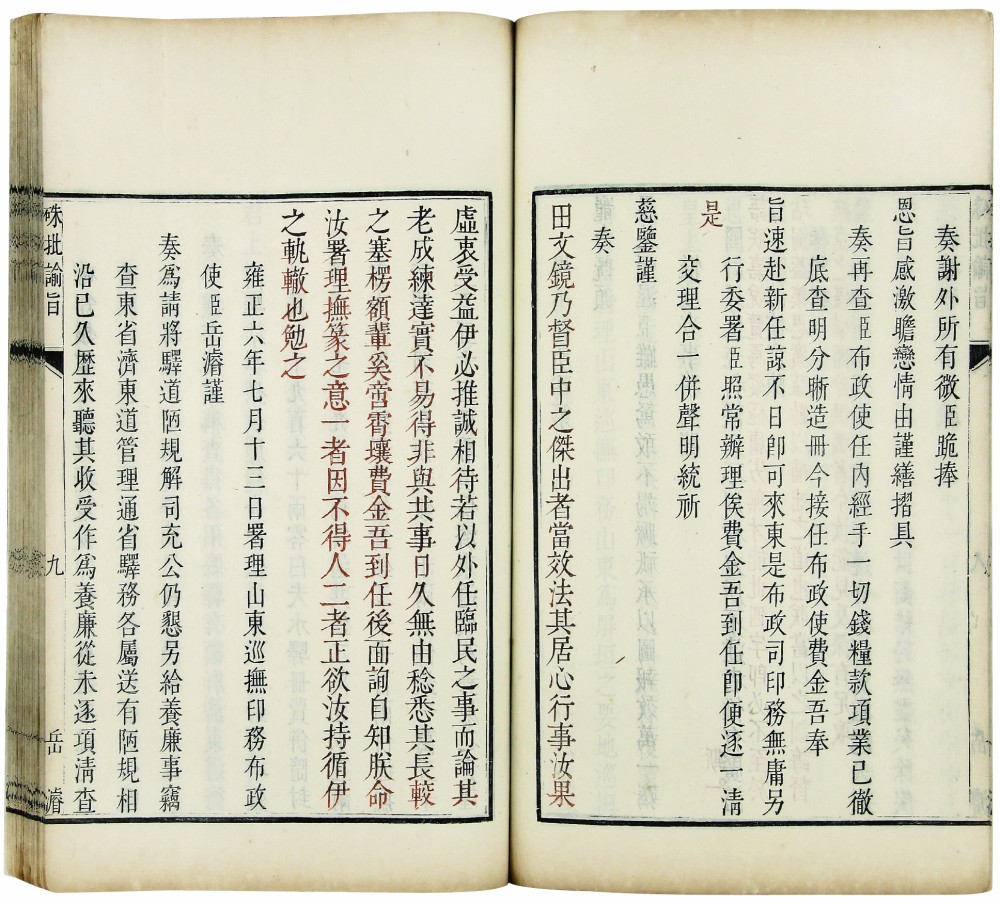 奏謝外所有微臣跪捧
恩旨感激瞻戀情由謹繕摺具
奏再查臣布政使任內經手一切錢糧款項業已徹
底查明分晰造冊今接任布政使費金吾奉
旨速赴新任諒不日卽可來東是布政司印務無庸另
行委署臣照常辦理俟費金吾到任卽便逐一淸
是
交理合一併聲明統祈
慈鑒謹
奏
田文鏡乃督臣中之傑出者當效法其居心行事汝果
虛衷受益伊必推誠相待若以外任臨民之事而論其
老成練達實不易得非與共事日久無由稔悉其長較
之塞楞額輩奚啻霄壤費金吾到任後面詢自知朕命
汝署理撫篆之意一者因不得人二者正欲汝持循伊
之軌轍也勉之
雍正六年七月十三日署理山東巡撫印務布政
使臣岳濬謹
奏爲請將驛道陋規解司充公仍懇另給養廉事竊
查東省濟東道管理通省驛務各屬送有陋規相
沿已久歷來聽其收受作爲養廉從未逐項淸查
硃批諭旨 九 岳濬